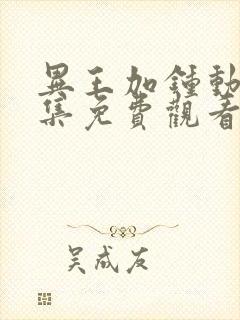 異王加鍾動
集免費觀看
吴成友